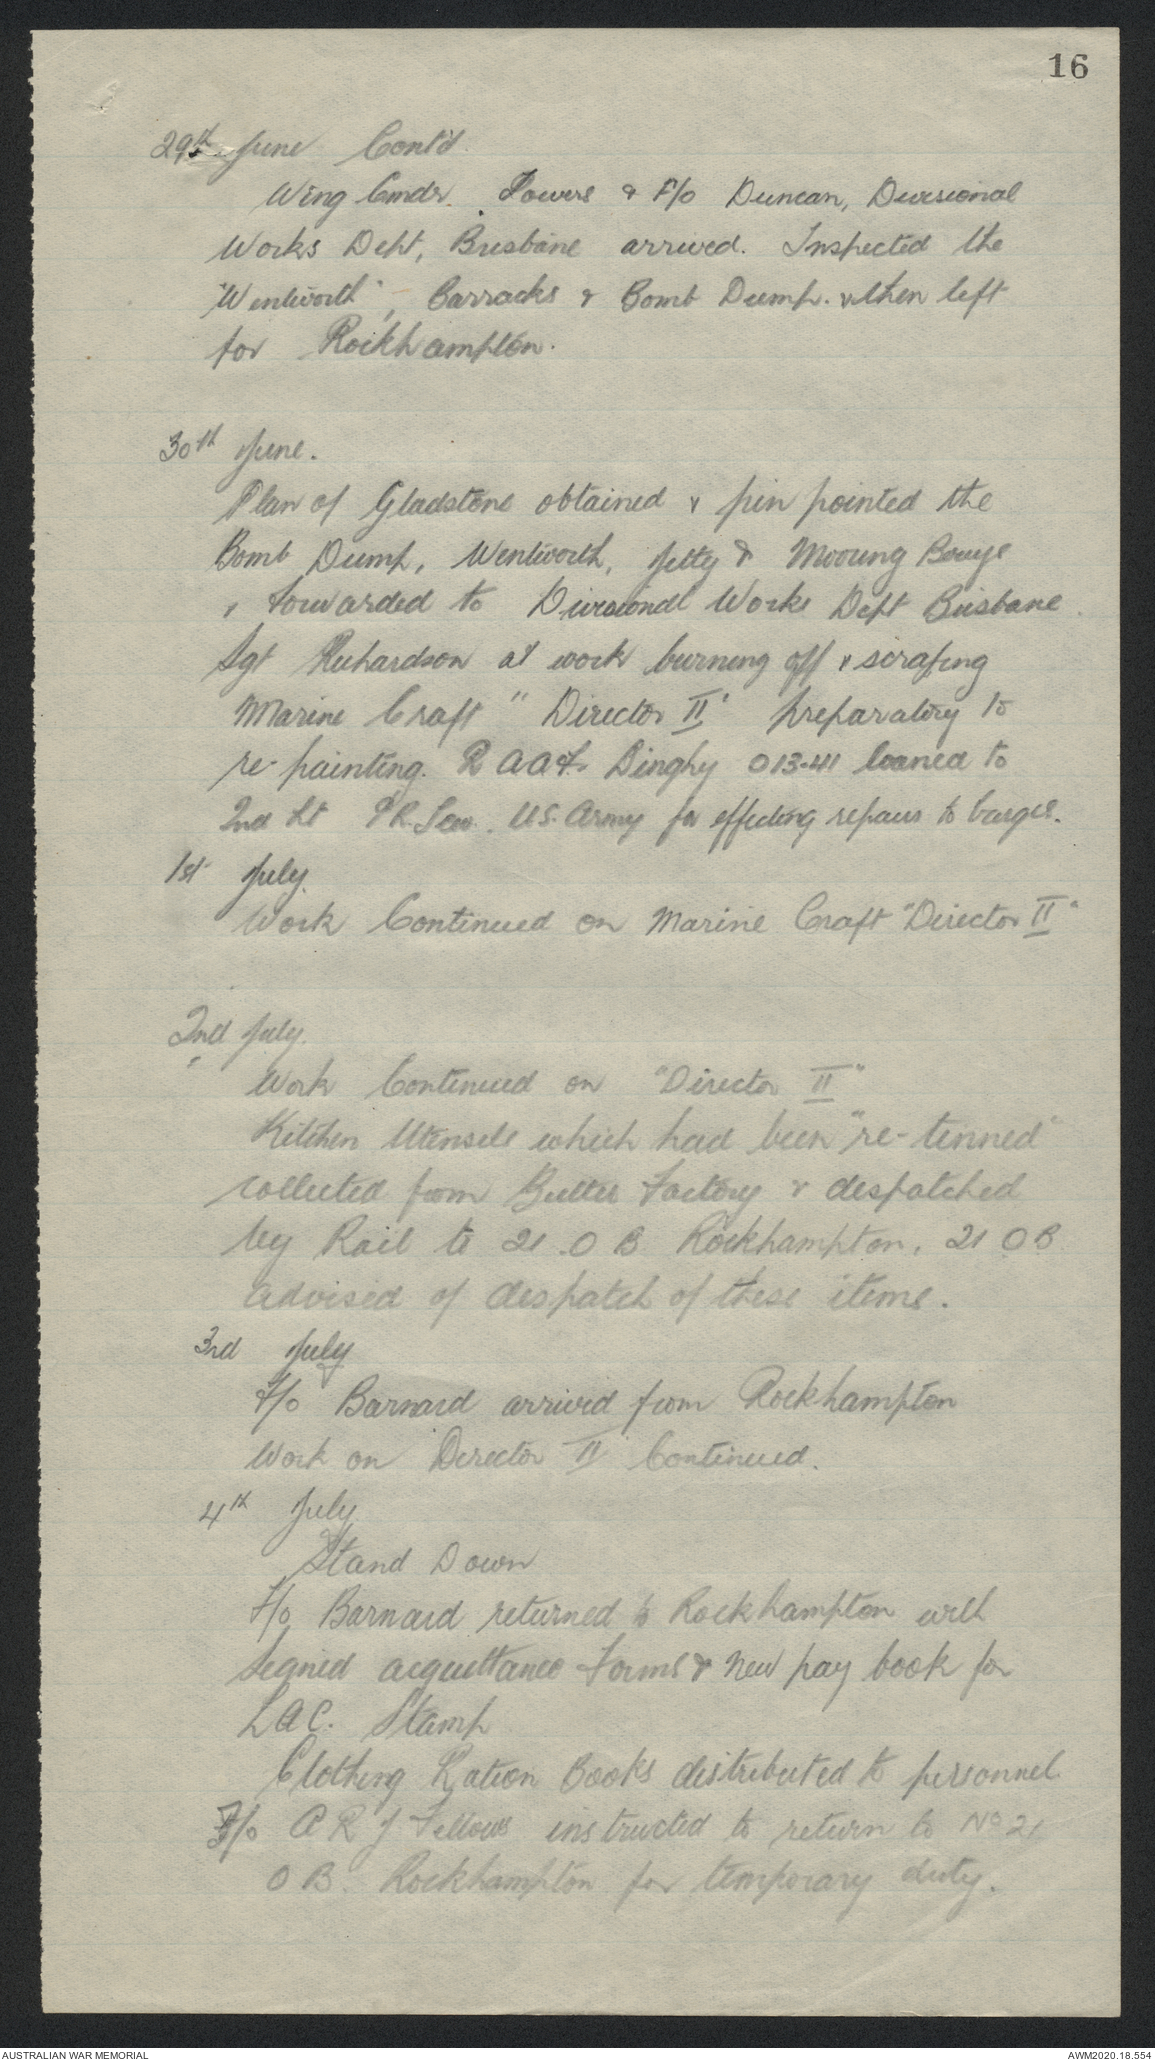 16
29th June Cont'd.
Wing Cmdr. Towers & F/o Duncan, Divisional
Works Dept, Brisbane arrived. Inspected the
"Wentworth", Barracks & Bomb Dump. & then left
for Rockhampton.
30th June.
Plan of Gladstone obtained & pin pointed the
Bomb Dump, Wentworth, Jetty & Mooring Bouys
, forwarded to Divisional Works Dept Brisbane.
Sgt Richardson at work burning off & scraping
Marine Craft "Director II" preparatory to
re-painting. RAAF. Dinghy 013-411 loaned to
2nd Lt U.S. Army for effecting repairs to barges.
1st July.
Work Continued on Marine Craft "Director II"
2nd July.
Work Continued on "Director II"
Kitchen Utensils which had been "re-tinned"
collected from Butter Factory & despatched
by Rail to 21 O B Rockhampton. 21 O B
advised of despatch of these items.
3rd July
F/o Barnard arrived from Rockhampton
Work on Director II Continued.
4th July
Stand Down
F/o Barnard returned to Rockhampton with
signed acquittance forms & new pay book for
LAC. Stamp
Clothing Ration Books distributed to personnel
F/o A R J Fellows instructed to return to No 21
O B. Rockhampton for temporary duty.
AUSTRALIAN WAR MEMORIAL
AWM2020.18.554